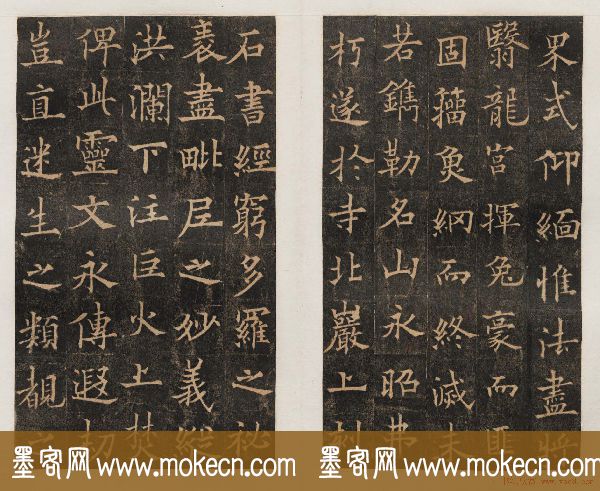 果式仰緬惟法盡將
翳龍宮揮兔豪而匪
固籀魚網而終滅未
若鐫勒名山永昭弗
朽遂於寺北巖上刻
石書經窮多羅之祕
袠盡毗尼之妙義縱
洪瀾下注巨火上焚
俾此靈文永傳遐劫
豈直迷生之類覩
墨客网 www.mokecn.com
墨客网 www.mokecn.com